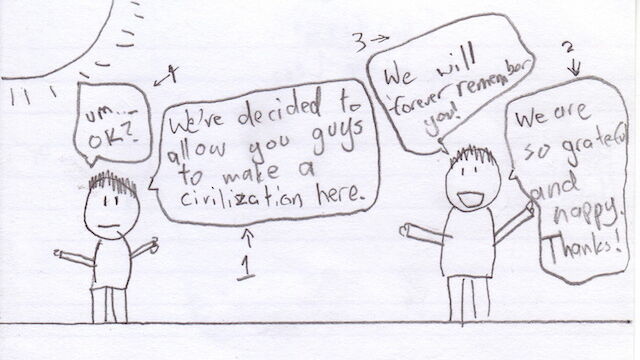 We've decided to
allow you guys
to make a
civilization here.
1
2
We are
so grateful
and
happy.
Thanks!
3
We will
forever remember
you!
4
um...
OK?